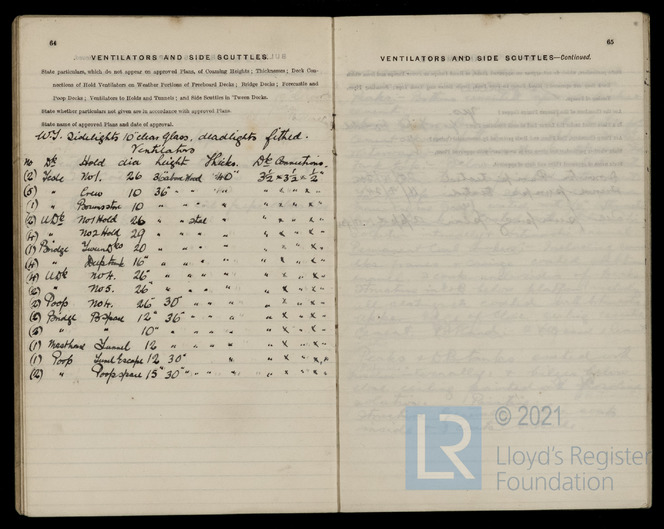 64
VENTILATORS AND SIDE SCUTTLES.
State particulars, which do not appear on approved Plans, of Coaming Heights; Thicknesses; Deck Con-
nections of Hold Ventilators on Weather Portions of Freeboard Decks; Bridge Decks; Forecastle and
Poop Decks; Ventilators to Holds and Tunnels; and Side Scuttles in 'Tween Decks.
State whether particulars not given are in accordance with approved Plans.
State name of approved Plans and date of approval.
W.T. Sidelights 10" clear glass, deadlights fitted.
Ventilators
no Dk Hold dia height Thicks. Dk Connections.
(2) Fcsle No 1. 26 36 above Wood ·40" 3½ × 3½ × ½"
(5) " Crew 10 36" " " " " × " × "
(1) " 10 " " " " × " × "
(2) U Dk No 1 Hold 26 " " steel " " × " × "
" No 2 Hold 29 " " " " × " × "
(1) Bridge Tween Dks 20 " " " " × " × "
" Deep tank 16" " " " " × " × "
U Dk No 4. 26" " " " " × " × "
" No 5. 26" " " " " × " × "
(2) Poop No 4. 26" 30" " " " " × " × "
Bridge B space 12" 36" " " " " × " × "
" " 10" " " " " × " × "
(1) Masthouse Tunnel 12 " " " " × " × "
(1) Poop Tunl Escape 12 30" " " " " × " × "
" Poop space 15" 30" " " " " × " × "
65
VENTILATORS AND SIDE SCUTTLES—Continued.
LR
© 2021
Lloyd's Register
Foundation